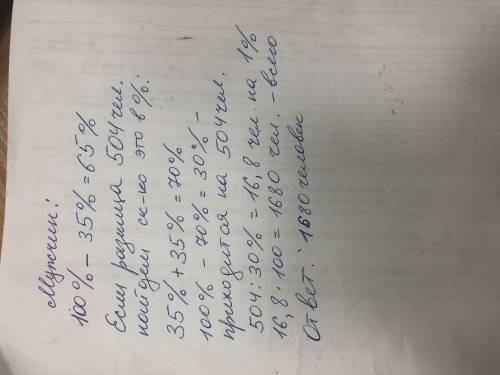 Мужчин:
100% - 35% = 65%
Если разница 504 чел.
найдем ск-ко это в %:
35% + 35% = 70%
100% - 70% = 30% -
приходится на 504 чел.
504 : 30% = 16,8 чел. на 1%
16,8 · 100 = 1680 чел. - всего
Ответ: 1680 человек